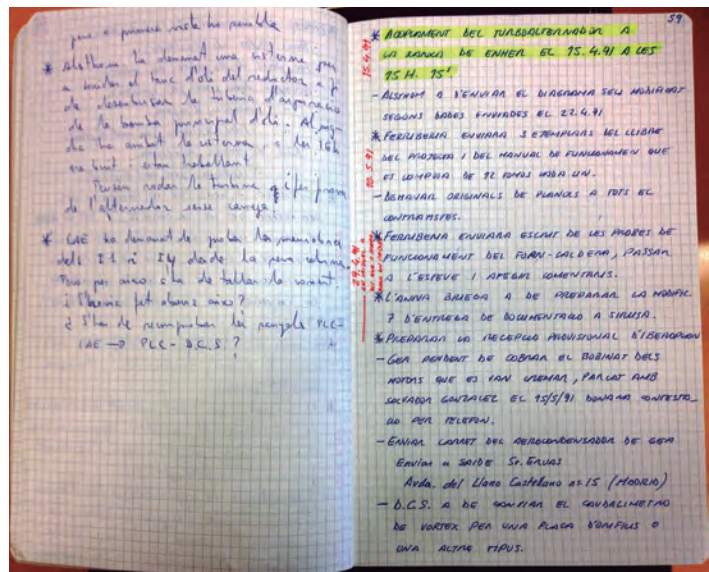 pero a primera vista ho sembla
* Alsthom ha demanat una cisterna per
a buidar el tanc d'oli del reductor a fi
de desembussar la tubería d'aspiració
de la bomba principal d'oli. Al mig-
dia ha arribat la cisterna, a les 16h
era buit i estan treballant.
Pensen rodar la turbina i fer proves
de l'alternador sense carrega.
* CAE ha demanat de probar les maniobres
dels I1 i I4 desde la seva cabina.
Però per aixo s'ha de tallar la corrent
¿ S'havia fet abans aixo?
¿ S'han de recomprobar les senyals PLC-
CAE → PLC - D.C.S?
59
15.4.91
* ACOPLAMENT DEL TURBOALTERNADOR A
LA XARXA DE ENHER EL 15.4.91 A LES
15 H. 15'
- ALSTHOM A D'ENVIAR EL DIAGRAMA SEU MODIFICAT
SEGONS DADES ENVIADES EL 22.4.91
* FERRUBERIA ENVIARA 3 EXEMPLARS DEL LLIBRE
DEL PROJECTE I DEL MANUAL DE FUNCIONAMEN QUE
ES COMPOSA DE 12 TOMOS CADA UN.
- DEMANAR ORIGINALS DE PLANOLS A TOTS EL
CONTRATISTES.
* FERRUBERIA ENVIARA ESCRIT DE LES PROBES DE
FUNCIONAMENT DEL FORN-CALDERA, PASSAR
A L'ESTEVE I AFEGIR COMENTARIS.
* L'ANNA BRUEGA A DE PREPARAR LA MODIFIC.
7 D'ENTREGA DE DOCUMENTACIO A SIRUSA.
* PREPARAR LA RECEPCIO PROVISIONAL D'IBERDROLA
- GEA PENDENT DE COBRAR EL BOBINAT DELS
MOTORS QUE ES VAN CREMAR, PARLAT AMB
SALVADOR GONZALEZ EL 15/5/91 DONARA CONTESTA-
CIO PER TELEFON.
- ENVIAR CARRET DEL AEROCONDENSADOR DE GEA
Enviar a SAIDE Sr.
Avda. del Llano Castellano nº 15 (MADRID)
- D.C.S. A DE CANVIAR EL CAUDALIMETRO
DE VORTEX PER UNA PLACA D'ORIFICIS O
UNA ALTRE TIPUS.